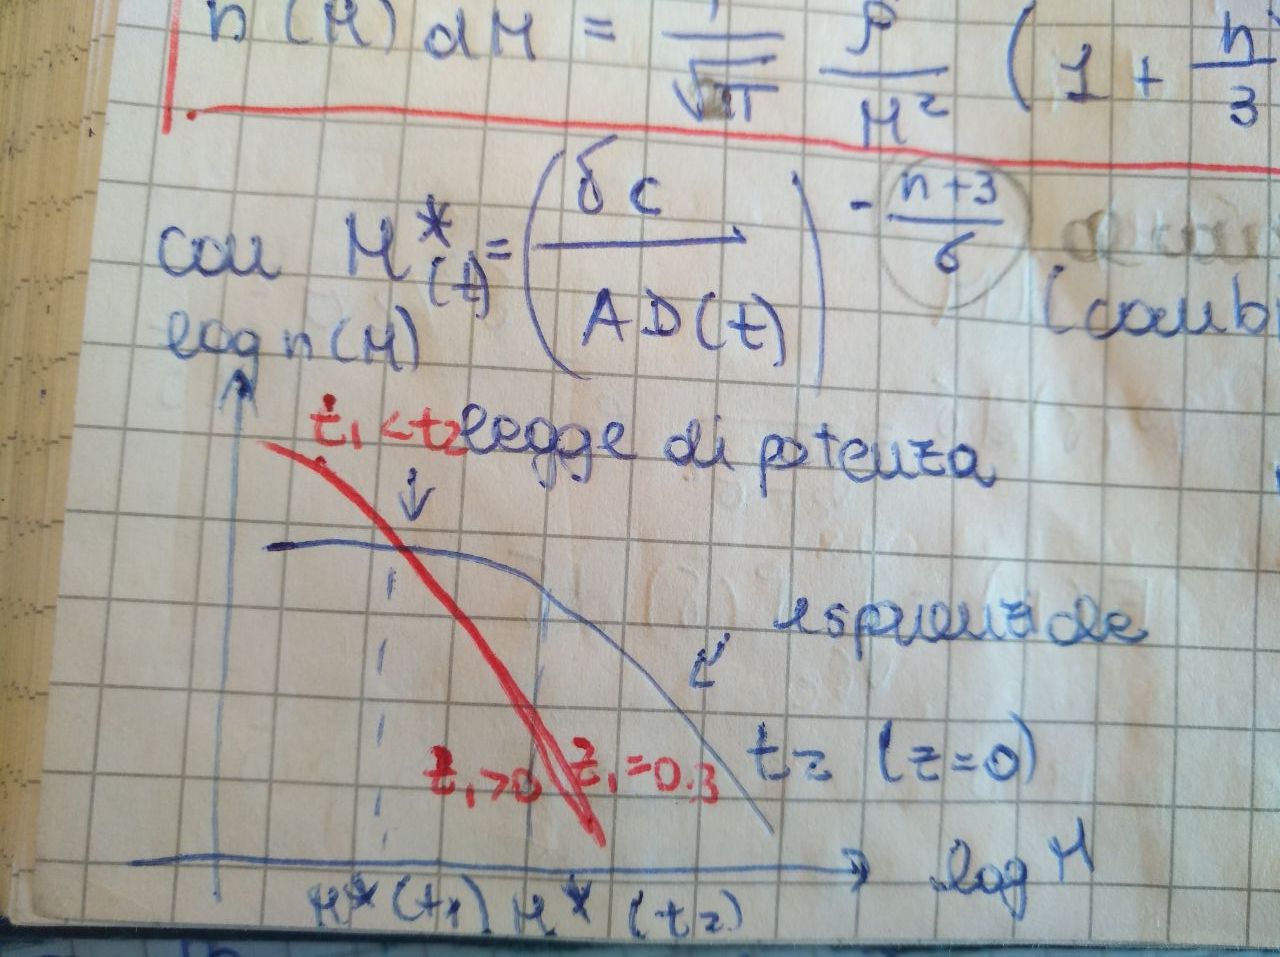 n(M) dM = 1/√π ρ/M² (1 + n/3
con M*(t) = (δc / AD(t)) - n+3/6
(comb
log n(M)
t₁ < t₂ legge di potenza
esponenziale
z₁>0 z₁=0.3 t₂ (z=0)
log M
M*(t₁) M*(t₂)